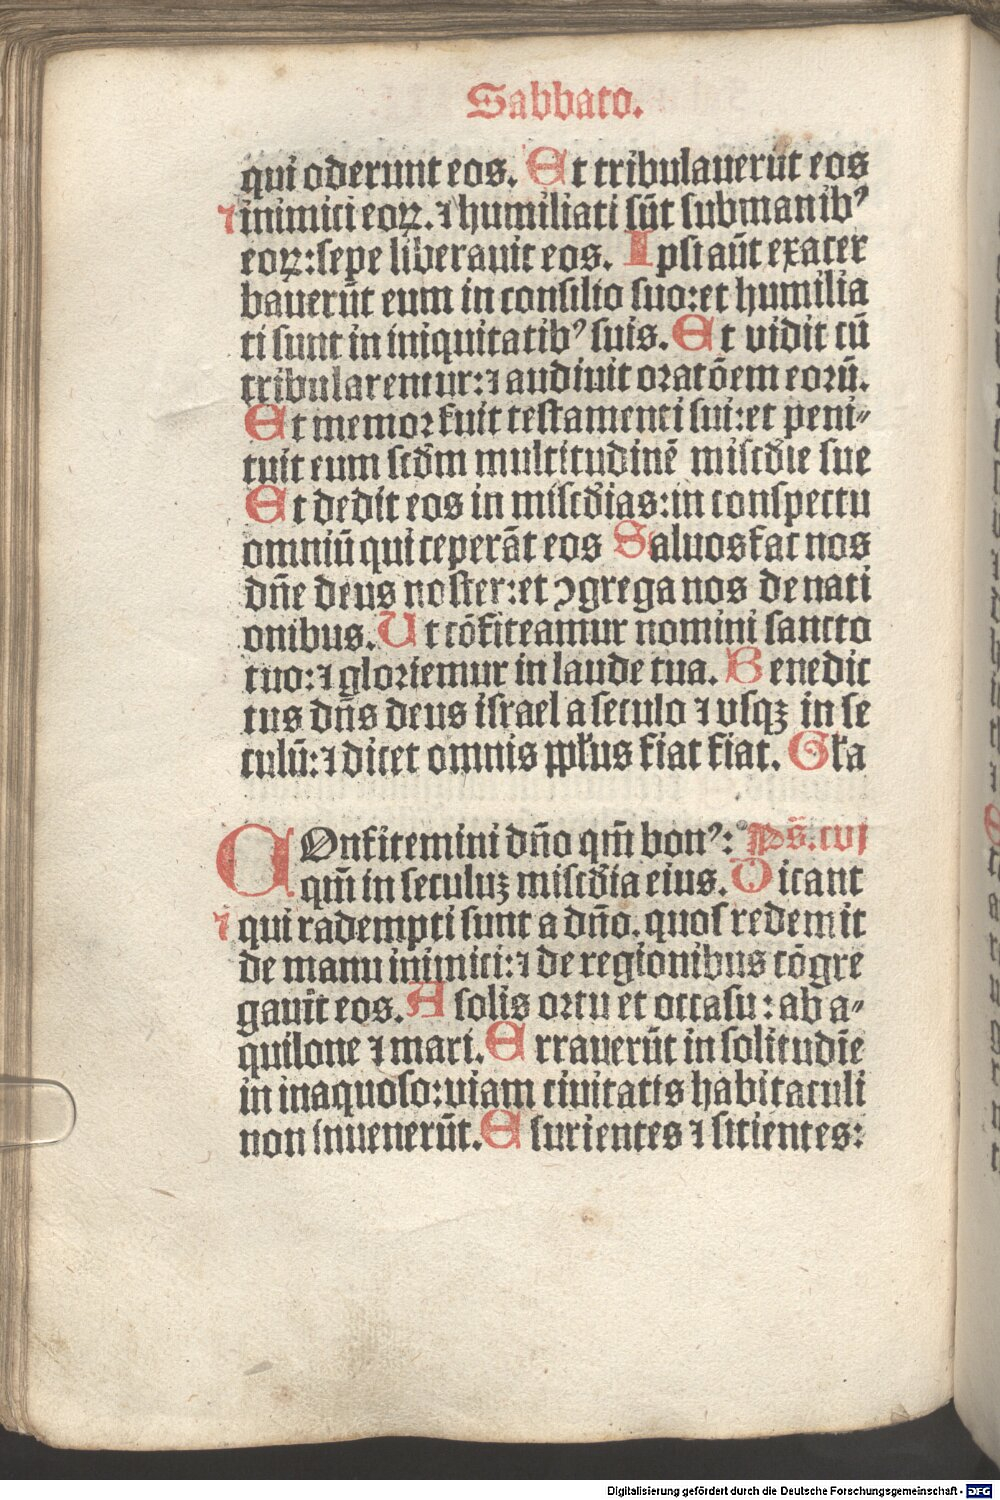 Sabbato.
qui oderunt eos. Et tribulauerūt eos
⁊ inimici eoꝝ. ⁊ humiliati sūt sub manibꝰ
eoꝝ: sepe liberauit eos. Ipsi aūt exacer
bauerūt eum in consilio suo: et humilia
ti sunt in iniquitatibꝰ suis. Et vidit cū
tribularentur: ⁊ audiuit oratōem eorū.
Et memor fuit testamenti sui: et peni⸗
tuit eum scđm multitudinē miscđie sue
Et dedit eos in miscđias: in conspectu
omniū qui ceperāt eos Saluos fac nos
dn̄e deus noster: et ꝯgrega nos de nati
onibus. Ut cōfiteamur nomini sancto
tuo: ⁊ gloriemur in laude tua. Benedic
tus dn̄s deus israel a seculo ⁊ vsqꝫ in se
culū: ⁊ dicet omnis ppłus fiat fiat. Gła
COnfitemini dn̄o qm̄ bonꝰ: Ps̄. cvj
qm̄ in seculuꝫ miscđia eius. Dicant
⁊ qui radempti sunt a dn̄o. quos redemit
de manu inimici: ⁊ de regionibus cōgre
gauit eos. A solis ortu et occasu: ab a⸗
quilone ⁊ mari. Errauerūt in solitudīe
in inaquoso: viam ciuitatis habitaculi
non inuenerūt. Esurientes ⁊ sitientes:
Digitalisierung gefördert durch die Deutsche Forschungsgemeinschaft - DFG